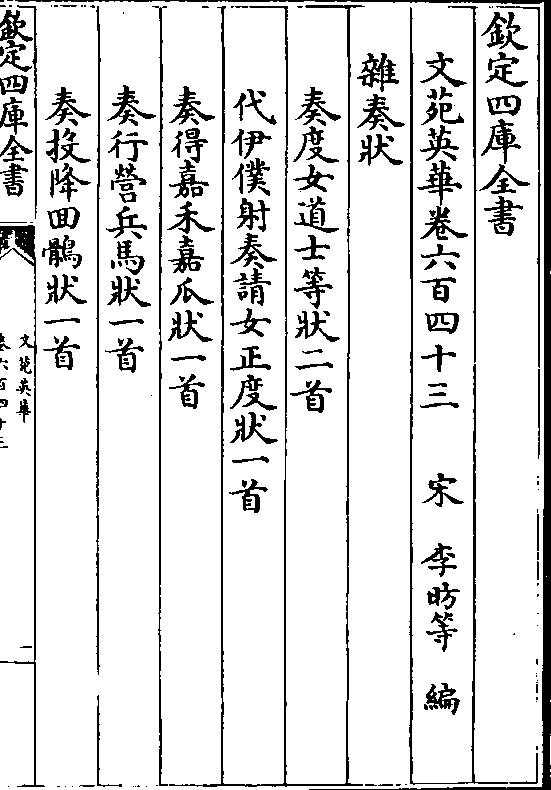 欽定四庫全書
文苑英華卷六百四十三 宋 李昉等 編
雜奏狀
奏度女道士等狀二首
代伊僕射奏請女正度狀一首
奏得嘉禾嘉瓜狀一首
奏行營兵馬狀一首
奏投降回鶻狀一首
欽定四庫全書
文苑英華
卷六百四十三
一